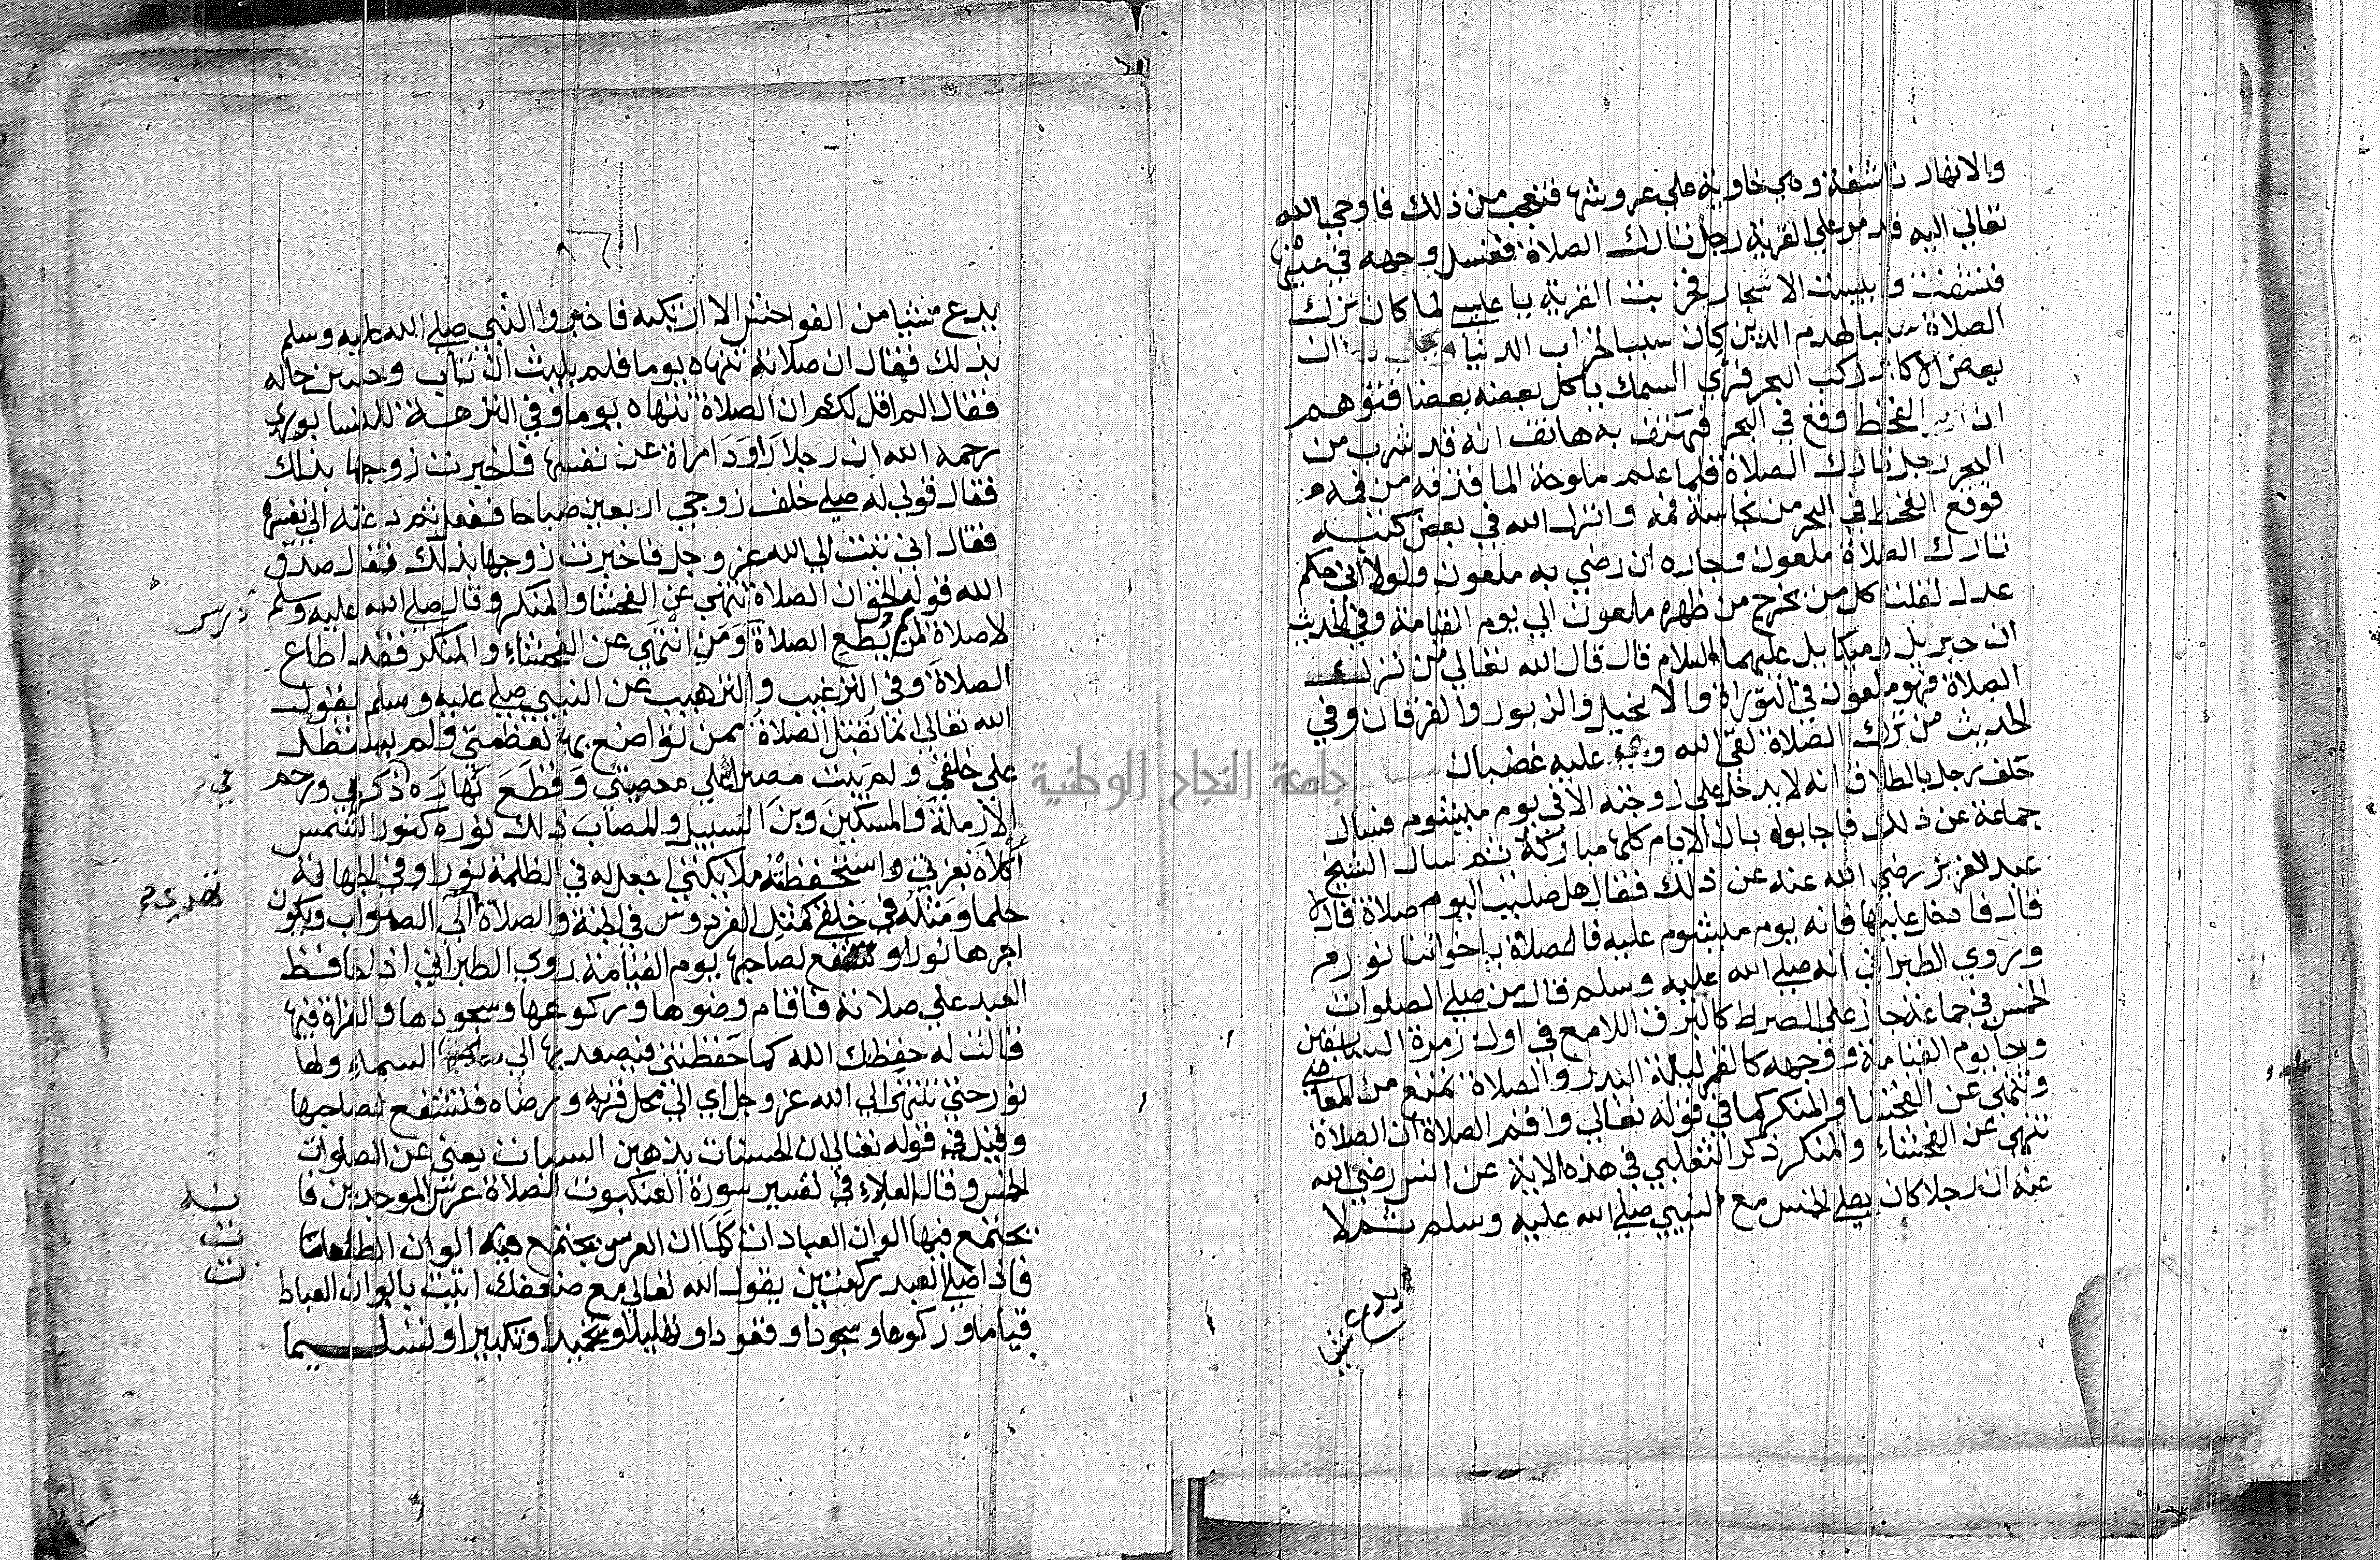 والانهار ناشفة وهي خاوية على عروشها فتعجب من ذلك فاوحي الله
تعالي اليه قد مر علي القرية رجل تارك الصلاة فغسل وجهه في عينها
فنشفت ويبست الاشجار فخربت القرية يا عيسى لما كان ترك
الصلاة سببا لهدم الدين كان سببا لخراب الدنيا ان
بعض الاكابر ركب البحر فراي السمك ياكل بعضه بعضا فتوهم
ان القحط وقع في البحر فهتف به هاتف انه قد شرب من
البحر رجل تارك الصلاة فلما علم ملوحة الما قذفه من فمه
فوقع القحط في البحر من نجاسة فمه وانزل الله في بعض كتبه
تارك الصلاة ملعون وجاره ان رضي به ملعون ولولا اني حكم
عدل لقلت كل من يخرج من ظهره ملعون الي يوم القيامة وفي الحديث
ان جبريل وميكايل عليهما السلام قال قال الله تعالي من ترك
الصلاة فهو ملعون في التوراة والانجيل والزبور والفرقان وفي
الحديث من ترك الصلاة لقي الله وهو عليه غضبان
حلف رجل بالطلاق انه لا يدخل على زوجته الا في يوم ميشوم فسال
جماعة عن ذلك فاجابوه بان الايام كلها مباركة ثم سال الشيخ
عبد العزيز رضي الله عنه عن ذلك فقال هل صليت اليوم صلاة قال لا
قال فادخل عليها فانه يوم ميشوم عليه فالصلاة يا اخواننا نور
وروي الطبراني انه صلي الله عليه وسلم قال من صلي الصلوات
الخمس في جماعة جاز على الصراط كالبرق اللامع في اول زمرة السابقين
وجا يوم القيامة ووجهه كالقمر ليلة البدر والصلاة تمنع من المعاصي
وتنهي عن الفحشا والمنكر كما في قوله تعالي واقم الصلاة ان الصلاة
تنهي عن الفحشاء والمنكر ذكر الثعلبي في هذه الاية عن انس رضي الله
عنه ان رجلا كان يصلي الخمس مع النبي صلي الله عليه وسلم ثم لا
يدع شيا
يدع شيا من الفواحش الا ارتكبه فاخبروا النبي صلي الله عليه وسلم
بذلك فقال ان صلاته تنهاه يوما فلم يلبث ان تاب وحسن حاله
فقال الم اقل لكم ان الصلاة تنهاه يوما وفي النزهة للنسابوري
رحمه الله ان رجلا راود امراة عن نفسها فاخبرت زوجها بذلك
فقال قولي له صلي خلف زوجي اربعين صباحا ففعل ثم دعته الي نفسها
فقال اني تبت الي الله عز وجل فاخبرت زوجها بذلك فقال صدق
الله قوله الحق ان الصلاة تنهي عن الفحشا والمنكر وقال صلي الله عليه وسلم
لا صلاة لمن لم يطع الصلاة ومن انتهي عن الفحشاء والمنكر فقد اطاع
الصلاة وفي الترغيب والترهيب عن النبي صلي عليه وسلم يقول
الله تعالي انما تقبل الصلاة ممن تواضع بها لعظمتي ولم يستطل
على خلقي ولم يبت مصرا علي معصيتي وقطع نهاره في ذكري ورحم
الارملة والمسكين وبن السبيل والمصاب ذلك نوره كنور الشمس
اكلاه بعزتي واستحفظته ملايكتي اجعل له في الظلمة نورا وفي الجهالة
حلما ومثله في خلقي كمثل الفردوس في الجنة والصلاة الي الصواب ويكون
اجرها نورا وتشفع لصاحبها يوم القيامة روي الطبراني اذا حافظ
العبد علي صلاته فاقام وضوها وركوعها وسجودها والقراة فيها
قالت له حفظك الله كما حفظتني فيصعد بها الي السماء ولها
نور حتي تنتهي الي الله عز وجل اي الي محل قربه ورضاه فتشفع لصاحبها
وقيل في قوله تعالي ان الحسنات يذهبن السيات يعني عن الصلوات
الخمس وقال العلاء في تفسير سورة العنكبوت الصلاة عرس الموحدين فا
يجتمع فيها الوان العبادات كما ان العرس يجتمع فيه الوان الطعامات
فاذا صلي العبد ركعتين يقول الله تعالي مع ضعفك اتيت بالوان العبادة
قياما وركوعا وسجودا وقعودا وتهليلا وتحميدا وتكبيرا وتسليما
جامعة النجاح الوطنية